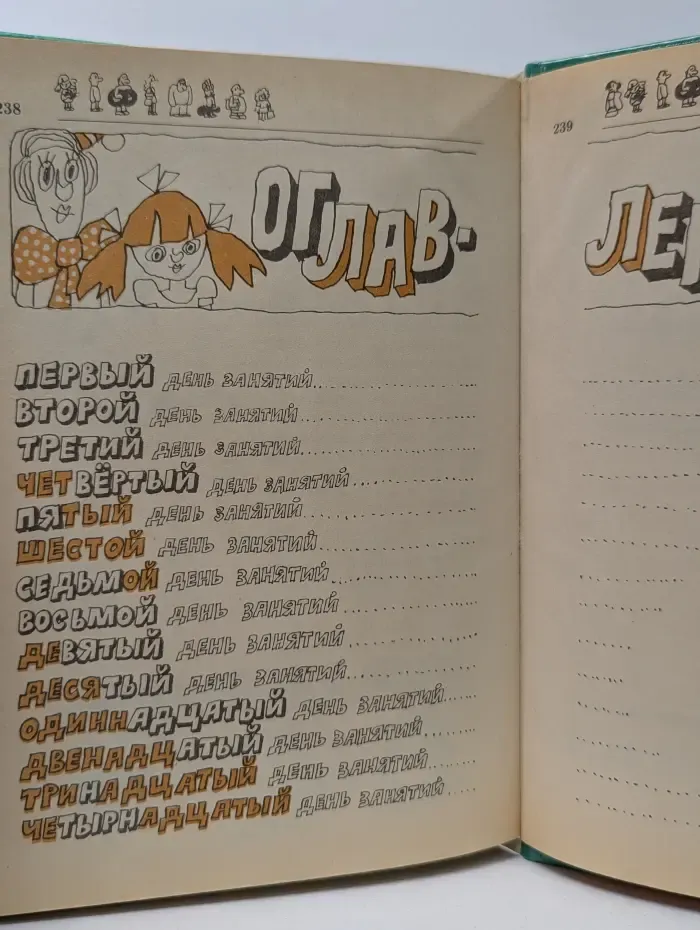 238
ОГЛАВ-
ПЕРВЫЙ ДЕНЬ ЗАНЯТИЙ
ВТОРОЙ ДЕНЬ ЗАНЯТИЙ
ТРЕТИЙ ДЕНЬ ЗАНЯТИЙ
ЧЕТВЁРТЫЙ ДЕНЬ ЗАНЯТИЙ
ПЯТЫЙ ДЕНЬ ЗАНЯТИЙ
ШЕСТОЙ ДЕНЬ ЗАНЯТИЙ
СЕДЬМОЙ ДЕНЬ ЗАНЯТИЙ
ВОСЬМОЙ ДЕНЬ ЗАНЯТИЙ
ДЕВЯТЫЙ ДЕНЬ ЗАНЯТИЙ
ДЕСЯТЫЙ ДЕНЬ ЗАНЯТИЙ
ОДИННАДЦАТЫЙ ДЕНЬ ЗАНЯТИЙ
ДВЕНАДЦАТЫЙ ДЕНЬ ЗАНЯТИЙ
ТРИНАДЦАТЫЙ ДЕНЬ ЗАНЯТИЙ
ЧЕТЫРНАДЦАТЫЙ ДЕНЬ ЗАНЯТИЙ
239
ЛЕ